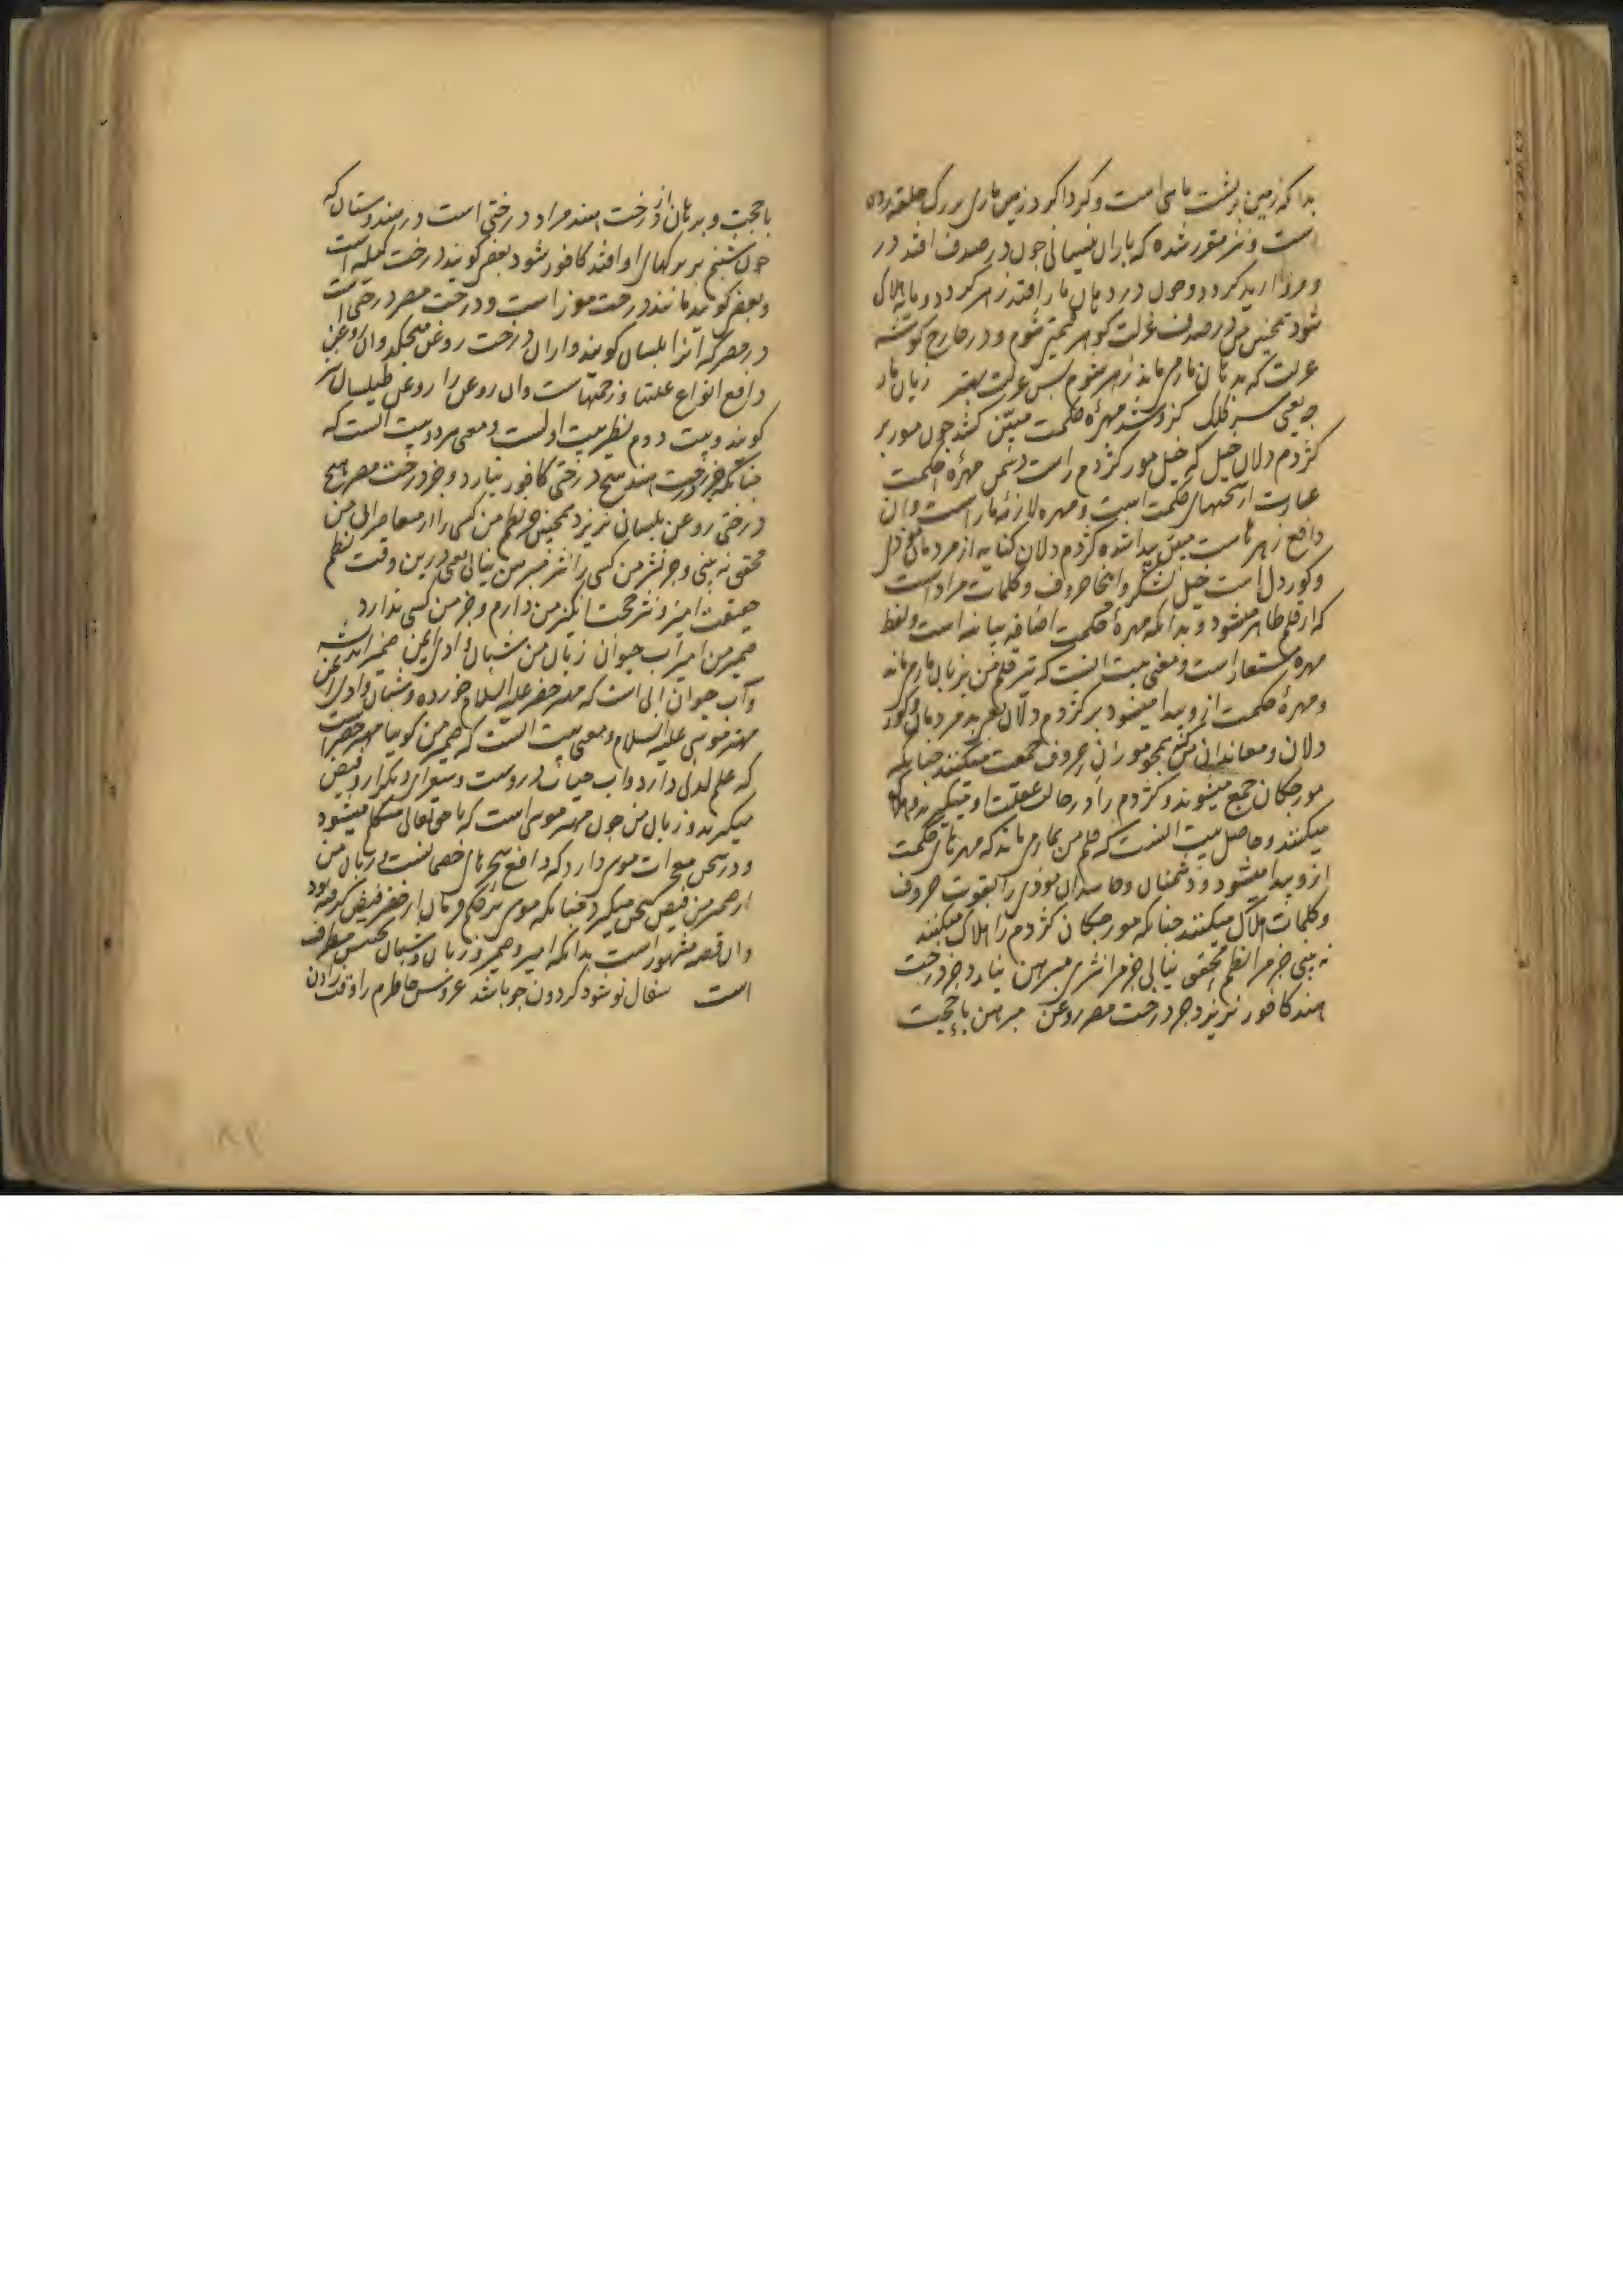 بدانکه زمین بر پشت ماهی است و گرداگرد زمین ماری بزرگ حلقه زده
است و نیز مقرر شده که باران نیسانی چون در صدف افتد در
و مروارید گردد و چون در دهان مار افتد زهر گردد و مایه هلاک
شود همچنین من در صدف عزلت گوهر قیمتی شوم و در خارج گوشه
عزلت که بدهان مارم ماند زهر شوم پس عزلت بهتر زبان مار
یعنی سر کلک کزو شد مهره حکمت مبین کشد چون مور بر
کژدم دلان خیل که خیل مور کژدم راست دشمن مهره حکمت
عبارت از سخنهای حکمت است و مهره لازمه مار است و آن
دافع زهرهاست مبین پیدا شده کژدم دلان کنایه از مردمان
و کوردل است خیل لشکر و اینجا حروف و کلمات مراد است
که از قلم ظاهر میشود و بدانکه مهره حکمت اضافه بیانیه است و لفظ
مهره مستعار است و معنی بیت اینست که سر قلم من بزبان مار می ماند
و مهره حکمت ازو پیدا میشود بر کژدم دلان یعنی بد مردمان و کور
دلان و معاندان من همچو موران حروف جمعیت میکنند چنانکه
مورچگان جمع میشوند و کژدم را در حالت غفلت او میگیرند و هلاک
میکنند و حاصل بیت اینست که قلم من بمار می ماند که مهره های حکمت
ازو پیدا میشود و دشمنان و حاسدان موذی را بقوت حروف
و کلمات هلاک میکنند چنانکه مورچگان کژدم را هلاک میکنند
نه بینی جز مرا نظم محقق نیابی جز مرا نثری مبرهن نیارد جز درخت
هند کافور نریزد جز درخت مصر روغن مبرهن با حجت
با حجت و برهان از درخت هند مراد درختی است در هندوستان که
چون شبنم بر برگهای او افتد کافور شود بعضی گویند درخت کیله است
و بعضی گویند مانند درخت موز است و درخت مصر درختی است
در مصر که آنرا بلسان گویند و از آن درخت روغن میچکد و آن روغن
دافع انواع علتها و زحمتهاست و آن روغن را روغن طیلسان نیز
گویند و بیت دوم نظیر بیت اول است و معنی هر دو بیت آنست که
چنانکه جز درخت هند هیچ درختی کافور نیارد و جز درخت مصر هیچ
درختی روغن بلسان نریزد همچنین جز نظم من کسی را از معاصران من
محقق نه بینی و جز نثر من کسی را نثر مبرهن نیابی یعنی درین وقت نظم
حقیقت آمیز و نثر حجت انگیز من دارم و جز من کسی ندارد
ضمیر من امیر آب حیوان زبان من شبان وادی ایمن ضمیر اندیشه
و آب حیوان آبی است که مهتر خضر علیه السلام خورده و شبان وادی ایمن
مهتر موسی علیه السلام و معنی بیت آنست که ضمیر من گویا مهتر خضر است
که علم لدنی دارد و آب حیات دروست و شعرای دیگر ازو فیض
میگیرند و زبان من چون مهتر موسی است که با حق تعالی متکلم میشود
و در سخن معجزات موسی دارد که دافع سحرهای خصمانست و زبان من
از ضمیر من فیض سخن میگیرد چنانکه موسی بحکم فرمان از خضر فیض گرفته بود
و آن قصه مشهور است بدانکه امیر و ضمیر و زبان و شبان تجنیس مطرف
است سفال نو شود گردون چو باشد عروس خاطرم را وقت زادن